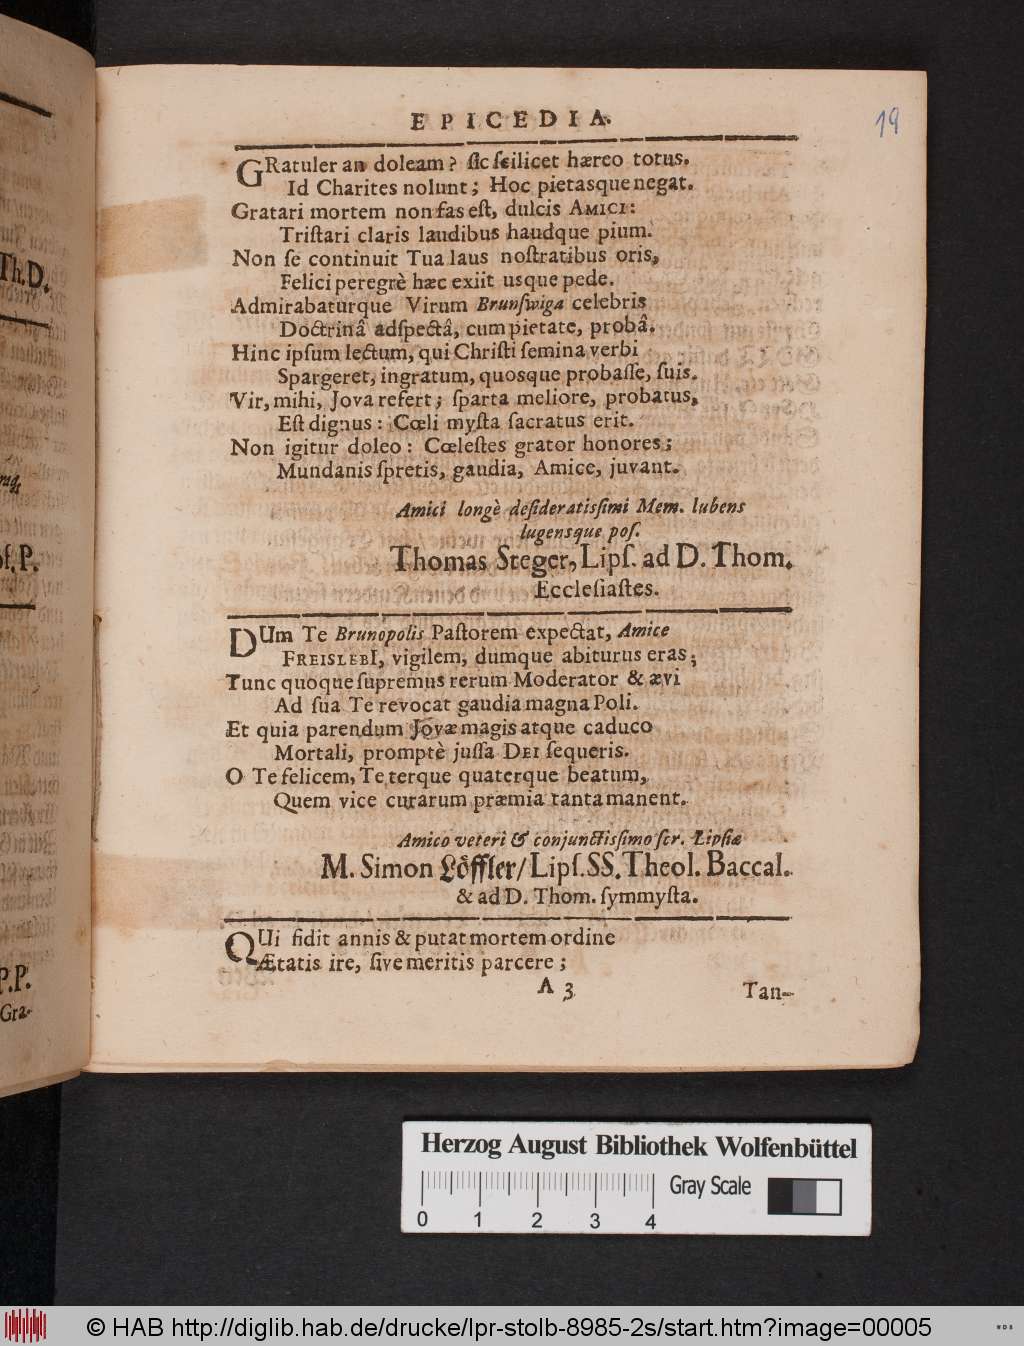 Th.D.
oſ. P.
P.P.
Gra-
EPICEDIA.
19
GRatuler an doleam? ſic ſcilicet hæreo totus.
Id Charites nolunt; Hoc pietasque negat.
Gratari mortem non fas eſt, dulcis AMICI:
Triſtari claris laudibus haudque pium.
Non ſe continuit Tua laus noſtratibus oris,
Felici peregrè hæc exiit usque pede.
Admirabaturque Virum Brunſwiga celebris
Doctrinâ adſpectâ, cum pietate, probâ.
Hinc ipſum lectum, qui Chriſti ſemina verbi
Spargeret, ingratum, quosque probaſſe, ſuis.
Vir, mihi, Jova refert; ſparta meliore, probatus,
Eſt dignus: Cœli myſta ſacratus erit.
Non igitur doleo: Cœleſtes grator honores;
Mundanis ſpretis, gaudia, Amice, juvant.
Amici longè deſideratiſſimi Mem. lubens
lugensque poſ.
Thomas Steger, Lipſ. ad D. Thom.
Eccleſiaſtes.
DUm Te Brunopolis Paſtorem expectat, Amice
FREISLEBI, vigilem, dumque abiturus eras;
Tunc quoque ſupremus rerum Moderator & ævi
Ad ſua Te revocat gaudia magna Poli.
Et quia parendum Jovæ magis atque caduco
Mortali, promptè juſſa DEI ſequeris.
O Te felicem, Te terque quaterque beatum,
Quem vice curarum præmia tanta manent.
Amico veteri & conjunctiſſimo ſcr. Lipſiæ
M. Simon Löffler/ Lipſ. SS. Theol. Baccal.
& ad D. Thom. ſymmyſta.
QUi fidit annis & putat mortem ordine
Ætatis ire, ſive meritis parcere;
A 3
Tan-
Herzog August Bibliothek Wolfenbüttel
Gray Scale
0 1 2 3 4
© HAB http://diglib.hab.de/drucke/lpr-stolb-8985-2s/start.htm?image=00005